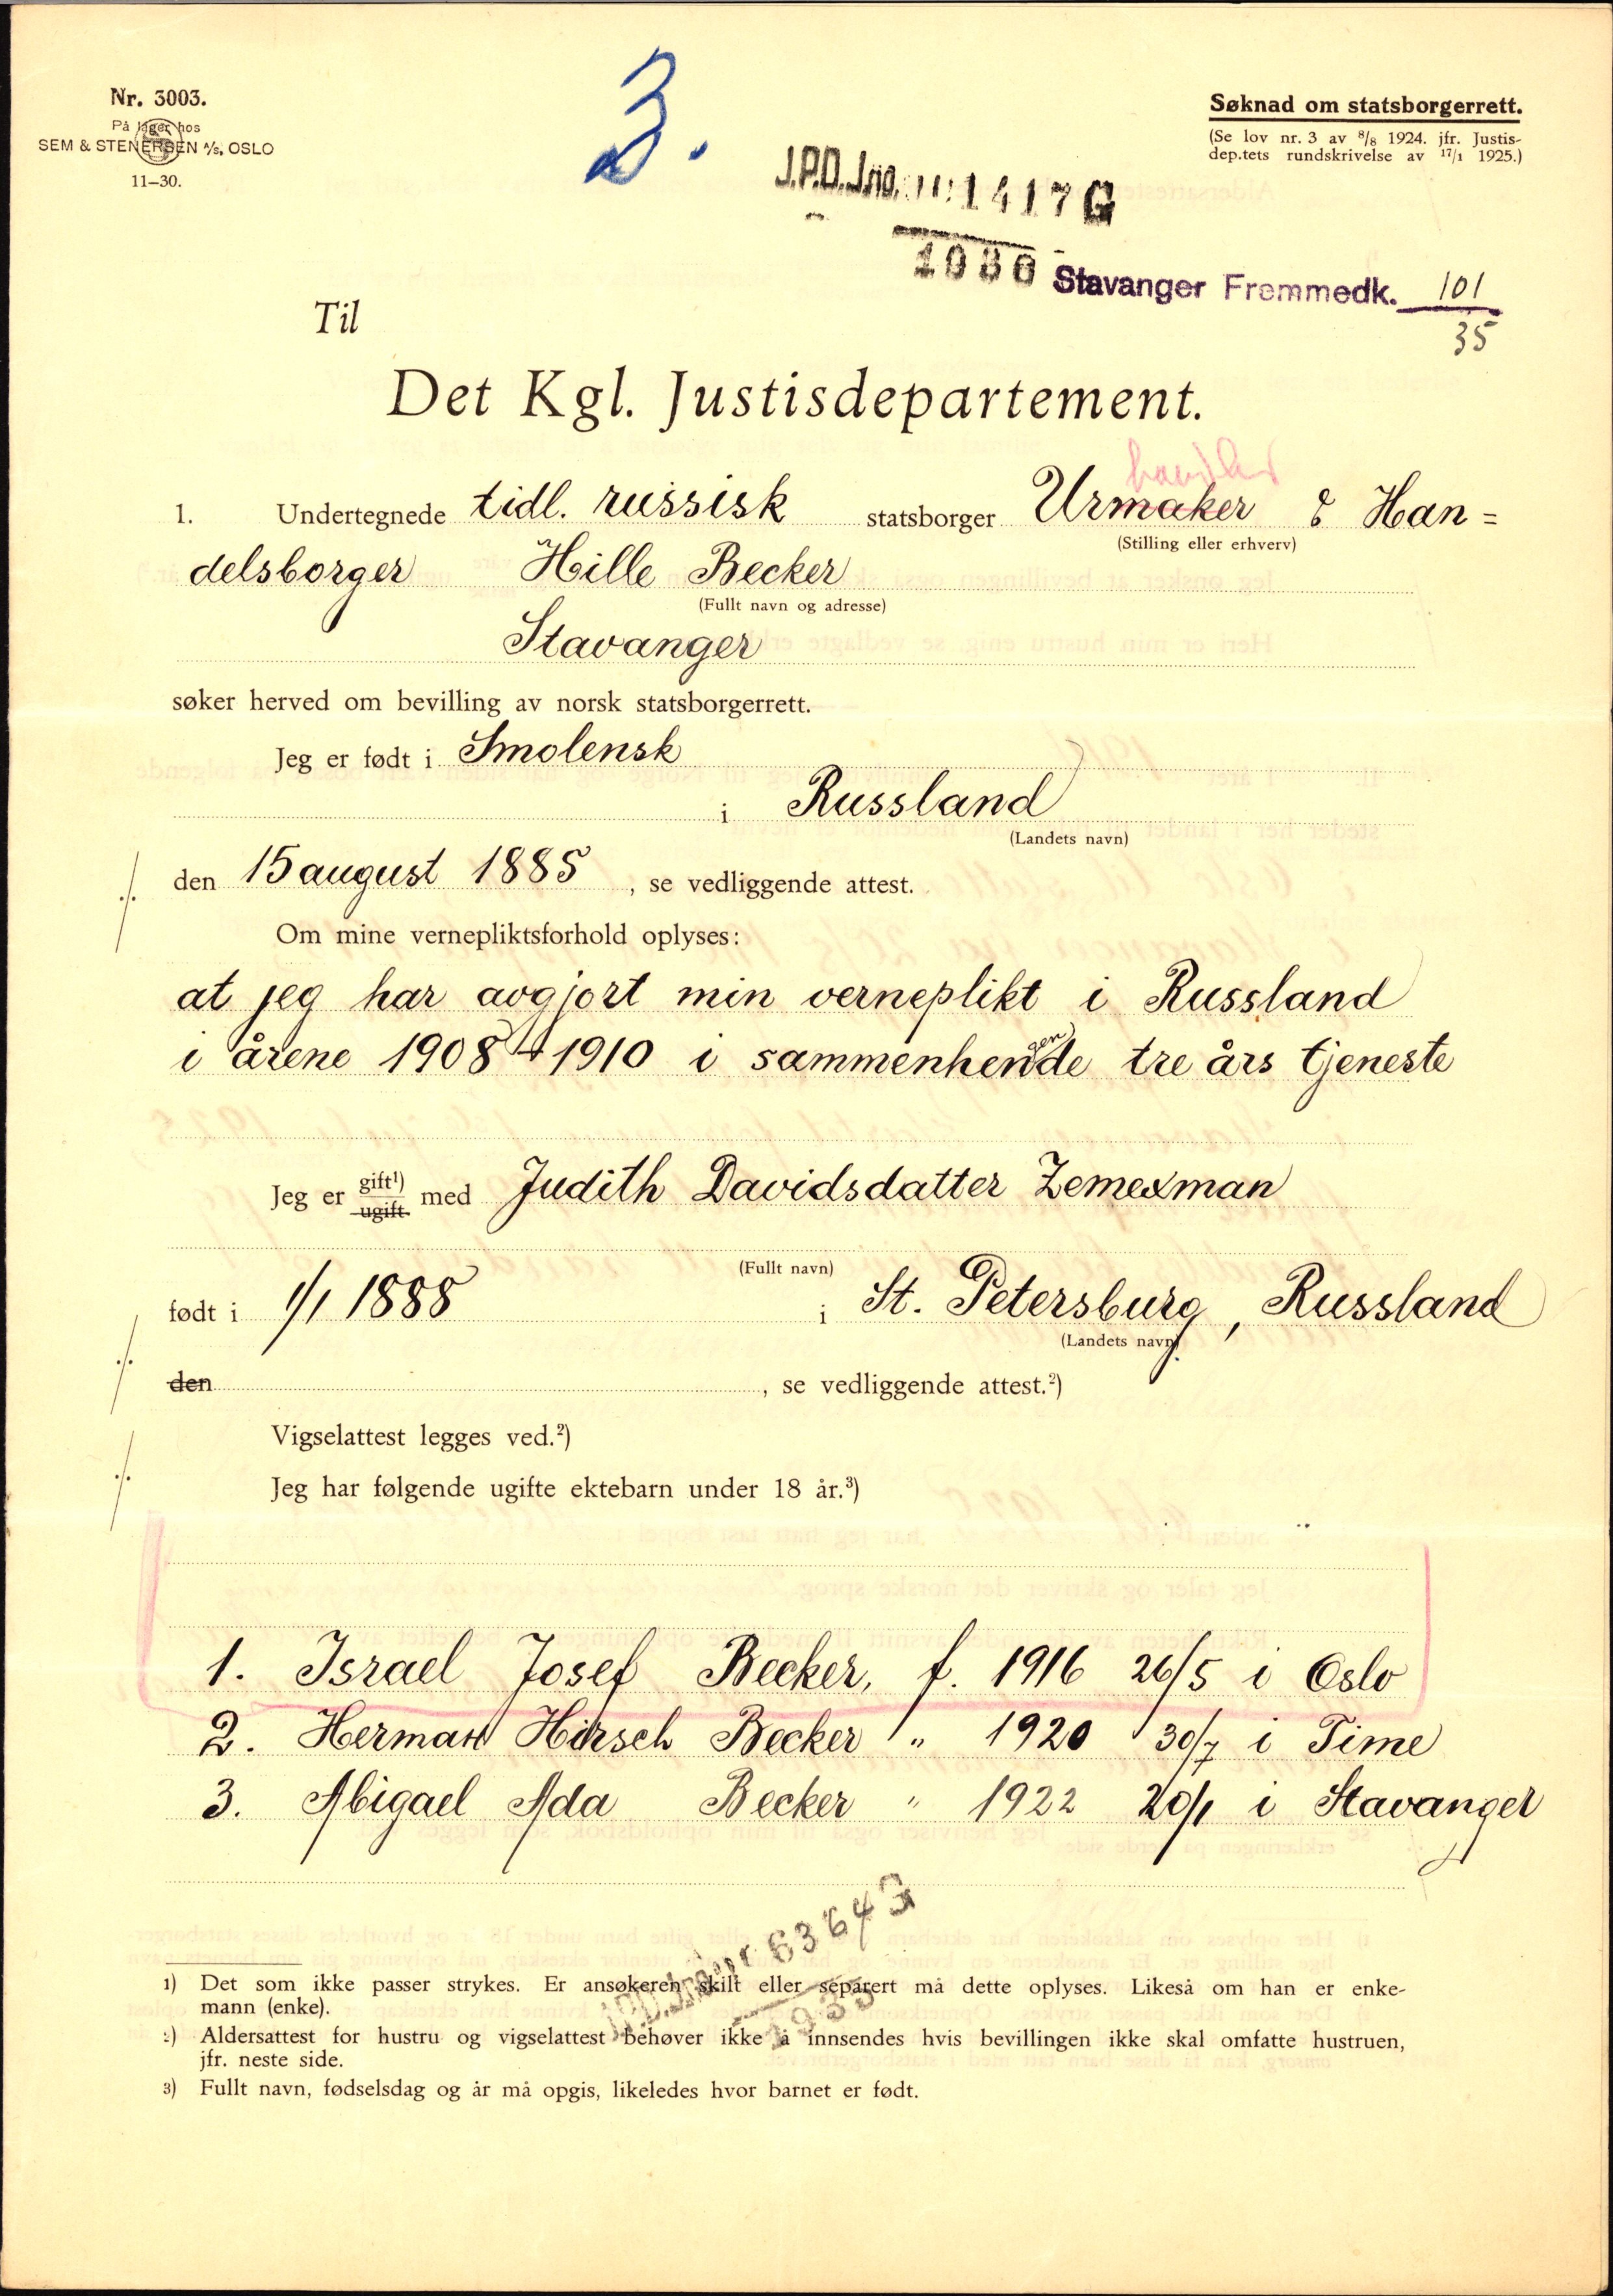 Nr. 3003.
På lager hos
SEM & STENERSEN A/S, OSLO
11–30.
3.
Søknad om statsborgerrett.
(Se lov nr. 3 av 8/8 1924. jfr. Justis-
dep.tets rundskrivelse av 17/1 1925.)
J.P.D.J.no. 1417 G
1936
Stavanger Fremmedk. 101
35
Til
Det Kgl. Justisdepartement.
handler
1. Undertegnede tidl. russisk statsborger Urmaker & Han=
(Stilling eller erhverv)
delsborger Hille Becker
(Fullt navn og adresse)
Stavanger
søker herved om bevilling av norsk statsborgerrett.
Jeg er født i Smolensk
i Russland
(Landets navn)
./. den 15 august 1885, se vedliggende attest.
Om mine vernepliktsforhold oplyses:
at jeg har avgjort min verneplikt i Russland
i årene 1908 1910 i sammenhengende tre års tjeneste
Jeg er gift¹)
ugift med Judith Davidsdatter Zemexman
(Fullt navn)
født i 1/1 1888 i St. Petersburg, Russland
(Landets navn)
./. den , se vedliggende attest.²)
Vigselattest legges ved.²)
./. Jeg har følgende ugifte ektebarn under 18 år.³)
1. Israel Josef Becker, f. 1916 26/5 i Oslo
2. Herman Hirsch Becker " 1920 30/7 i Time
3. Abigael Ada Becker " 1922 20/1 i Stavanger
63643
1935
1) Det som ikke passer strykes. Er ansøkeren skilt eller separert må dette oplyses. Likeså om han er enke-
mann (enke).
2) Aldersattest for hustru og vigselattest behøver ikke å innsendes hvis bevillingen ikke skal omfatte hustruen,
jfr. neste side.
3) Fullt navn, fødselsdag og år må opgis, likeledes hvor barnet er født.